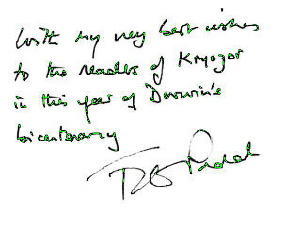 With my very best wishes
to the readers of Kryogar
in this year of Darwin's
bicentenary